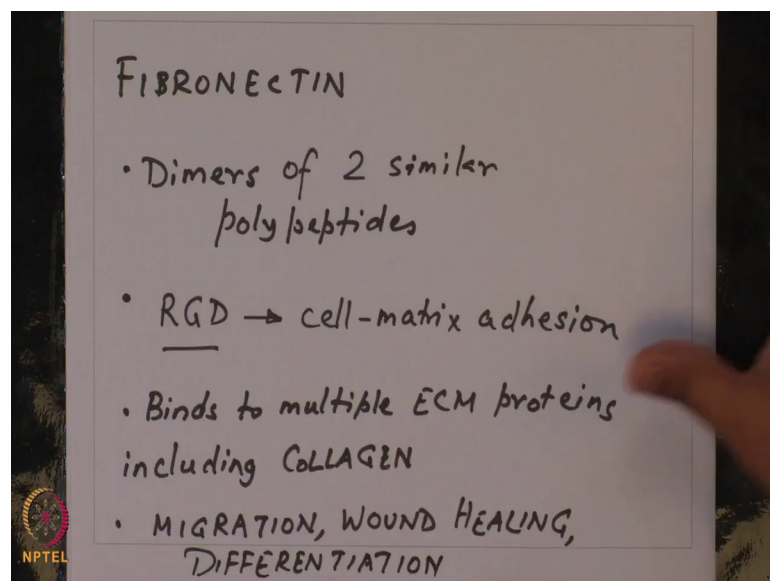 FIBRONECTIN
• Dimers of 2 similar
polypeptides
• RGD → cell-matrix adhesion
• Binds to multiple ECM proteins
including COLLAGEN
• MIGRATION, WOUND HEALING,
DIFFERENTIATION
NPTEL